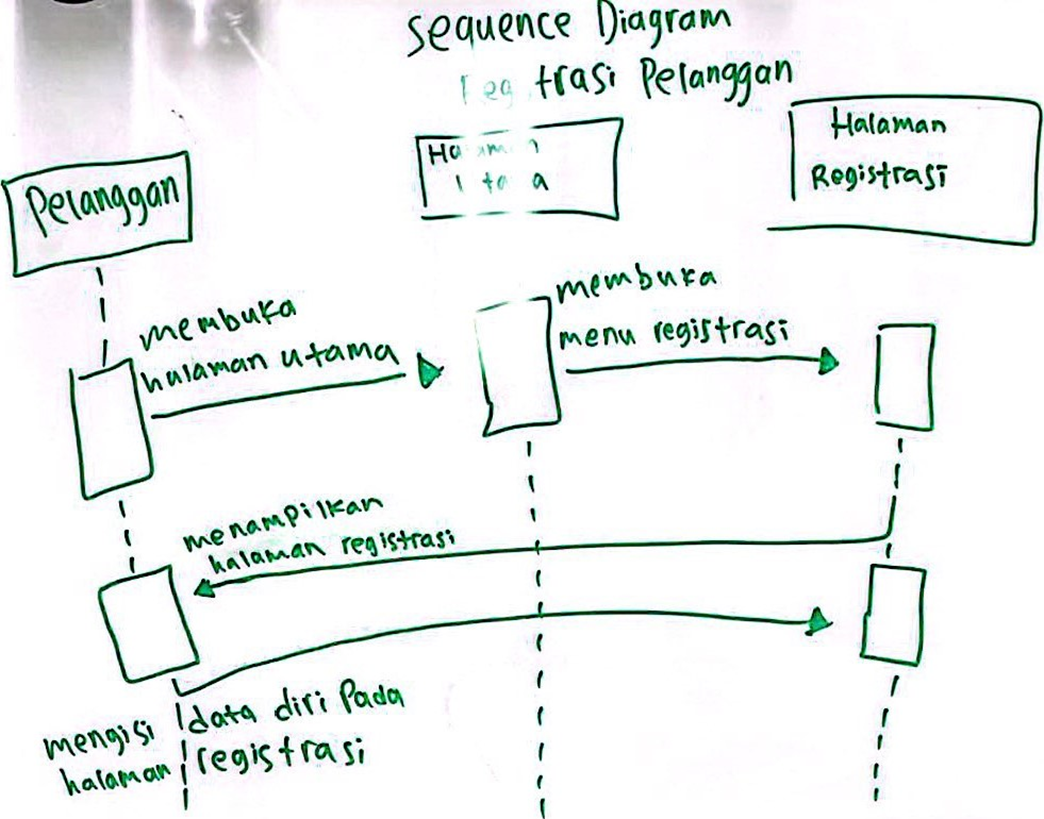 sequence Diagram
trasi Pelanggan
Halaman
Registrasi
Pelanggan
membuka
halaman utama
membuka
menu registrasi
menampilkan
halaman registrasi
mengisi data diri Pada
halaman registrasi